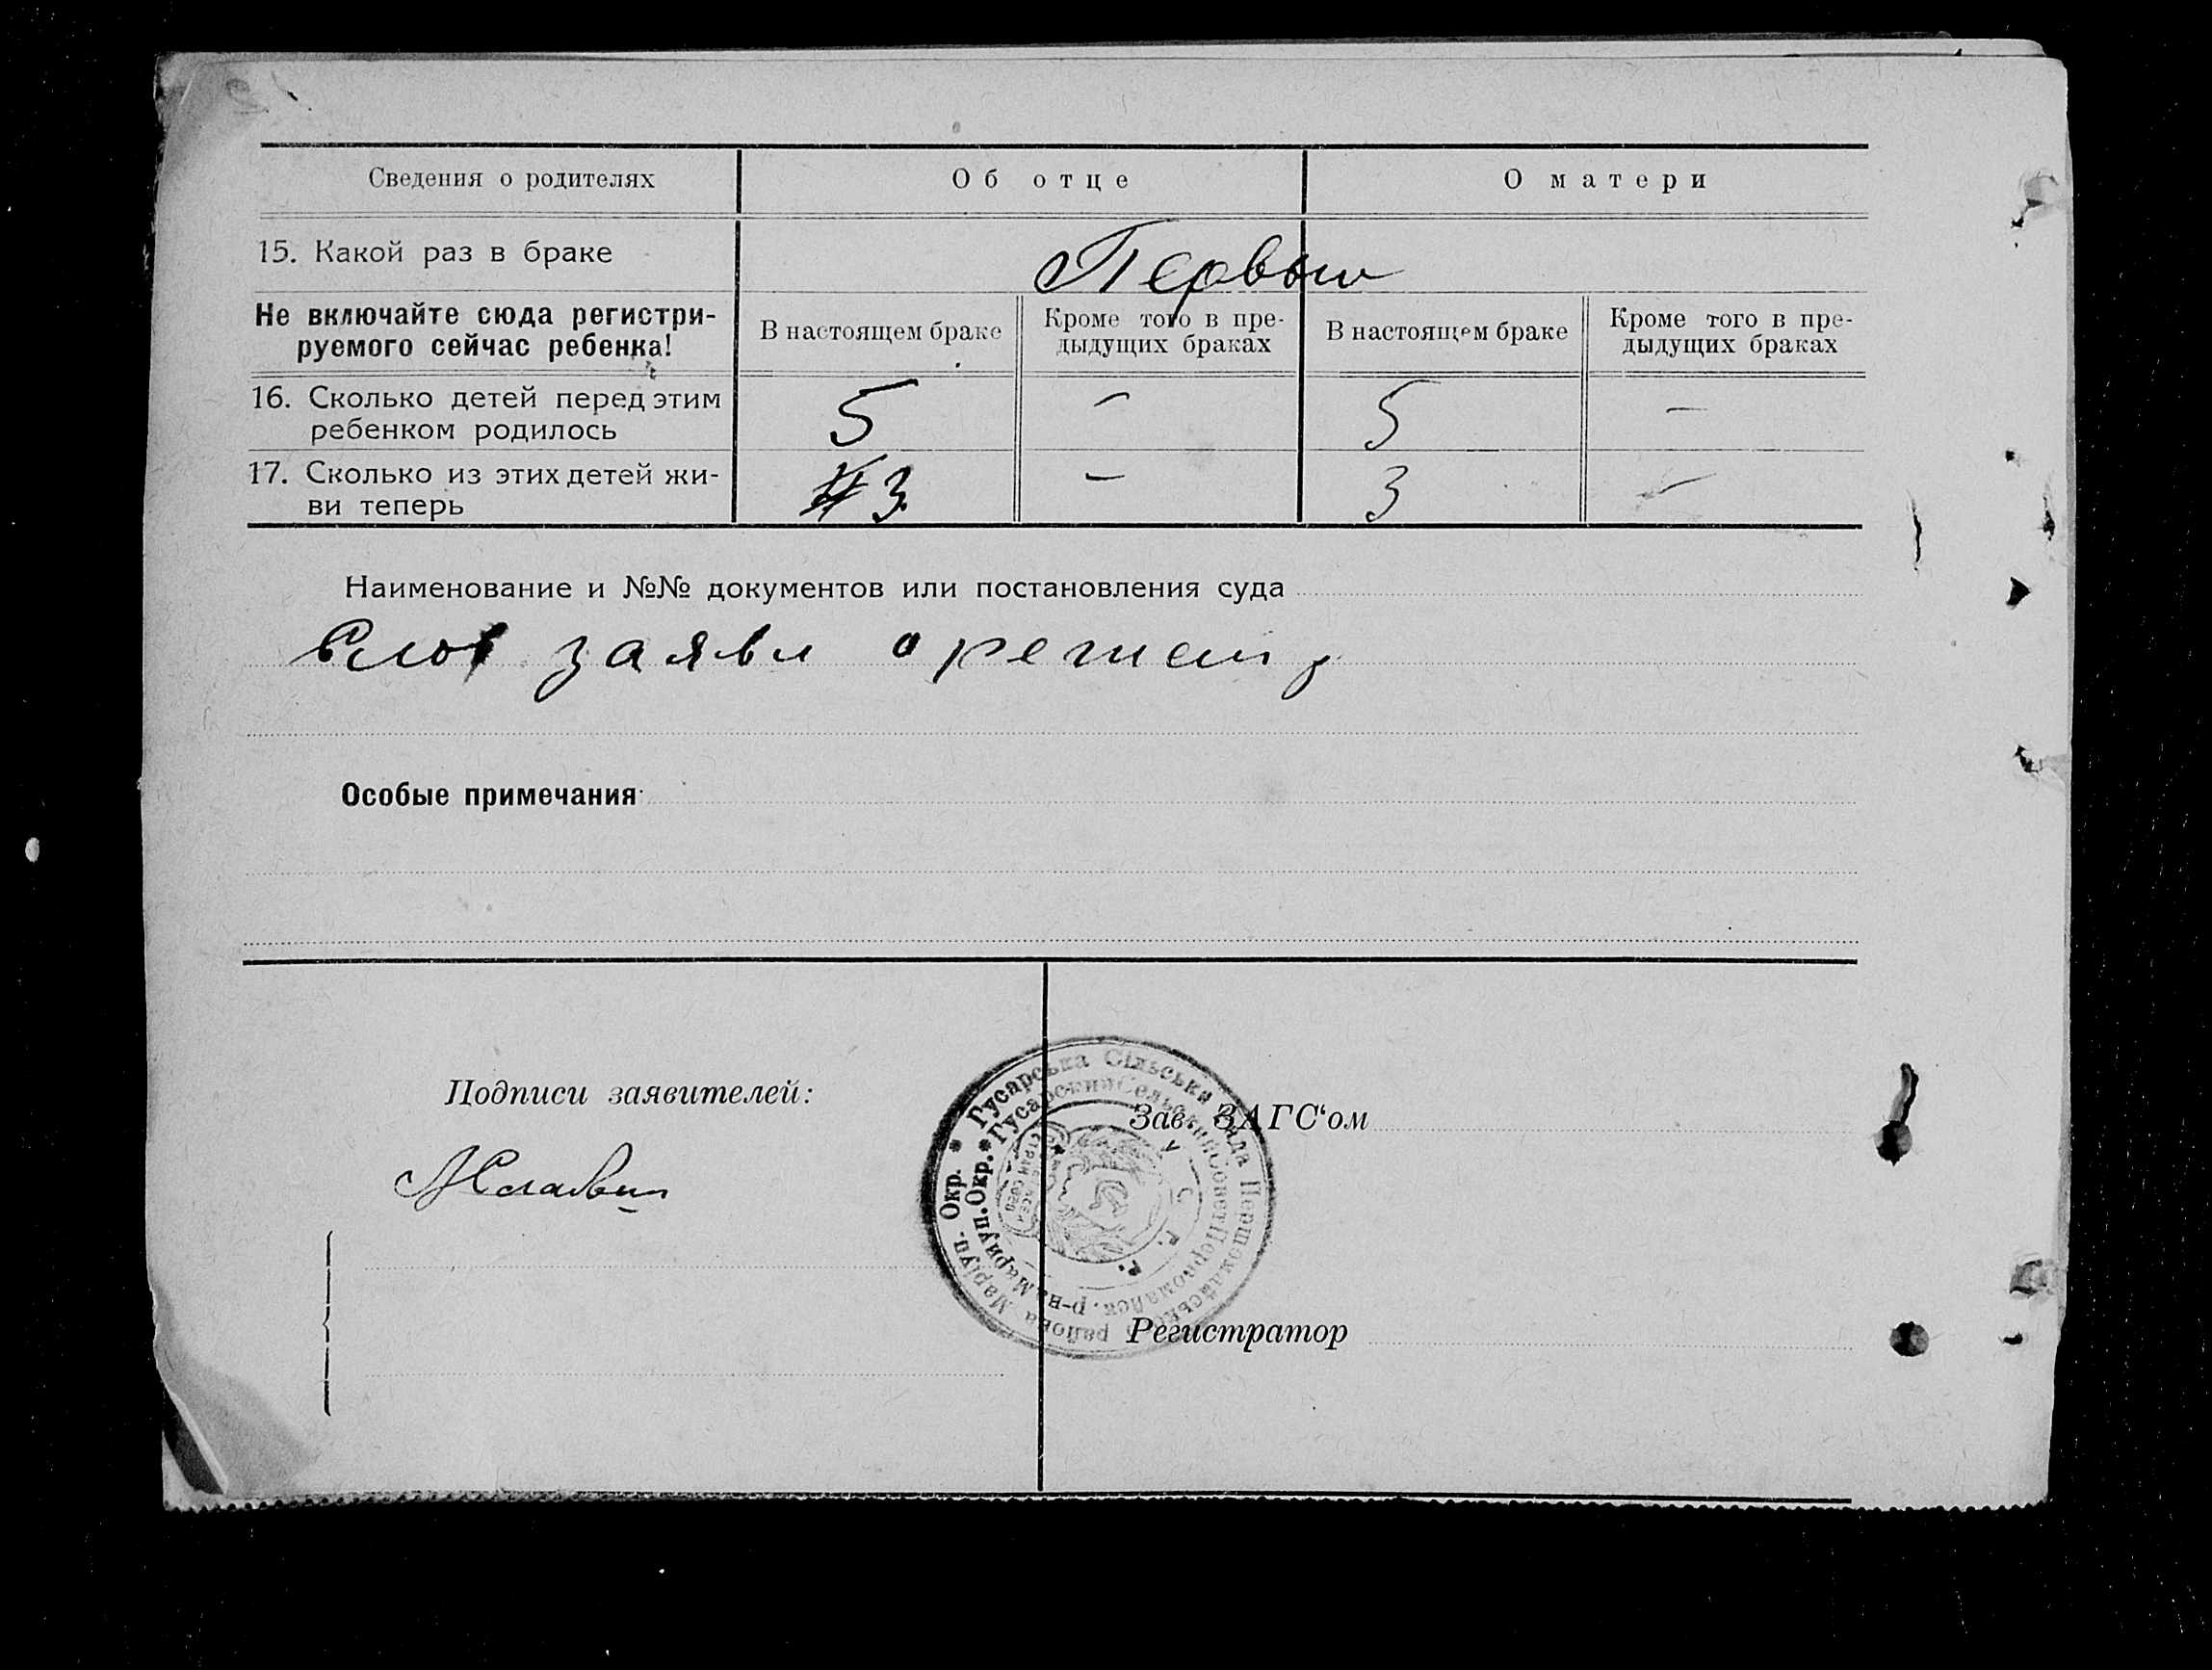 Сведения о родителях
Об отце
О матери
15. Какой раз в браке
Первый
Не включайте сюда регистри-
руемого сейчас ребенка!
В настоящем браке
Кроме того в пре-
дыдущих браках
В настоящем браке
Кроме того в пре-
дыдущих браках
16. Сколько детей перед этим
ребенком родилось
5
-
5
-
17. Сколько из этих детей жи-
ви теперь
3
-
3
-
Наименование и №№ документов или постановления суда
заявл
Особые примечания
Подписи заявителей:
Зав. ЗАГС‘ом
Регистратор
* Гусарська Сільська Рада Першотравнева района Маріуп. Окр.
* Гусарский Сельский Совет Первомайск. р-на Мариуп. Окр.
У. С. Р. Р.